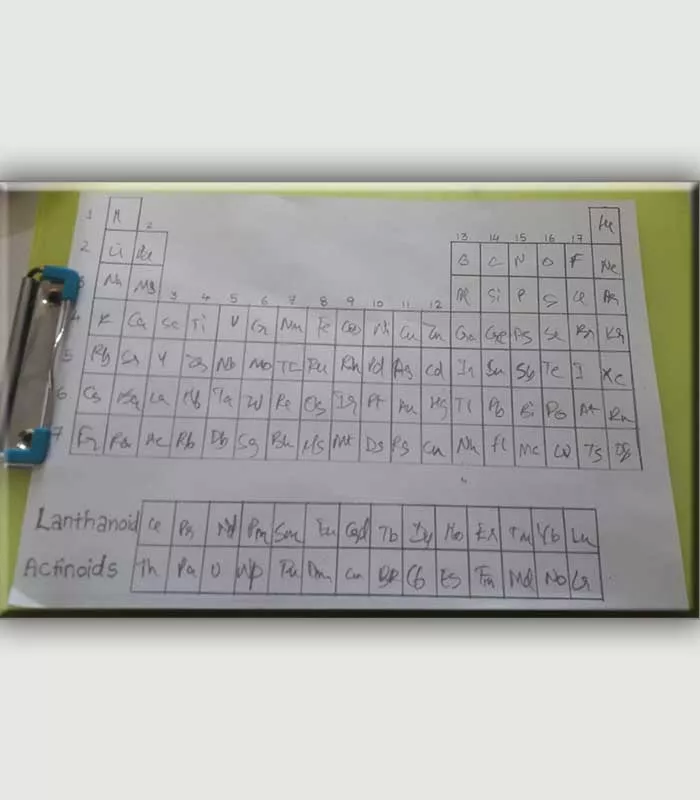 1 H 2 He
2 Li Be 13 14 15 16 17
B C N O F Ne
3 Na Mg 3 4 5 6 7 8 9 10 11 12 Al Si P S Cl Ar
4 K Ca Sc Ti V Cr Mn Fe Co Ni Cu Zn Ga Ge As Se Br Kr
5 Rb Sr Y Zr Nb Mo Tc Ru Rh Pd Ag Cd In Sn Sb Te I Xe
6 Cs Ba La Hf Ta W Re Os Ir Pt Au Hg Tl Pb Bi Po At Rn
7 Fr Ra Ac Rb Db Sg Bh Hs Mt Ds Rg Cn Nh Fl Mc Lv Ts Og
Lanthanoid Ce Pr Nd Pm Sm Eu Gd Tb Dy Ho Er Tm Yb Lu
Actinoids Th Pa U Np Pu Am Cm Bk Cf Es Fm Md No Lr